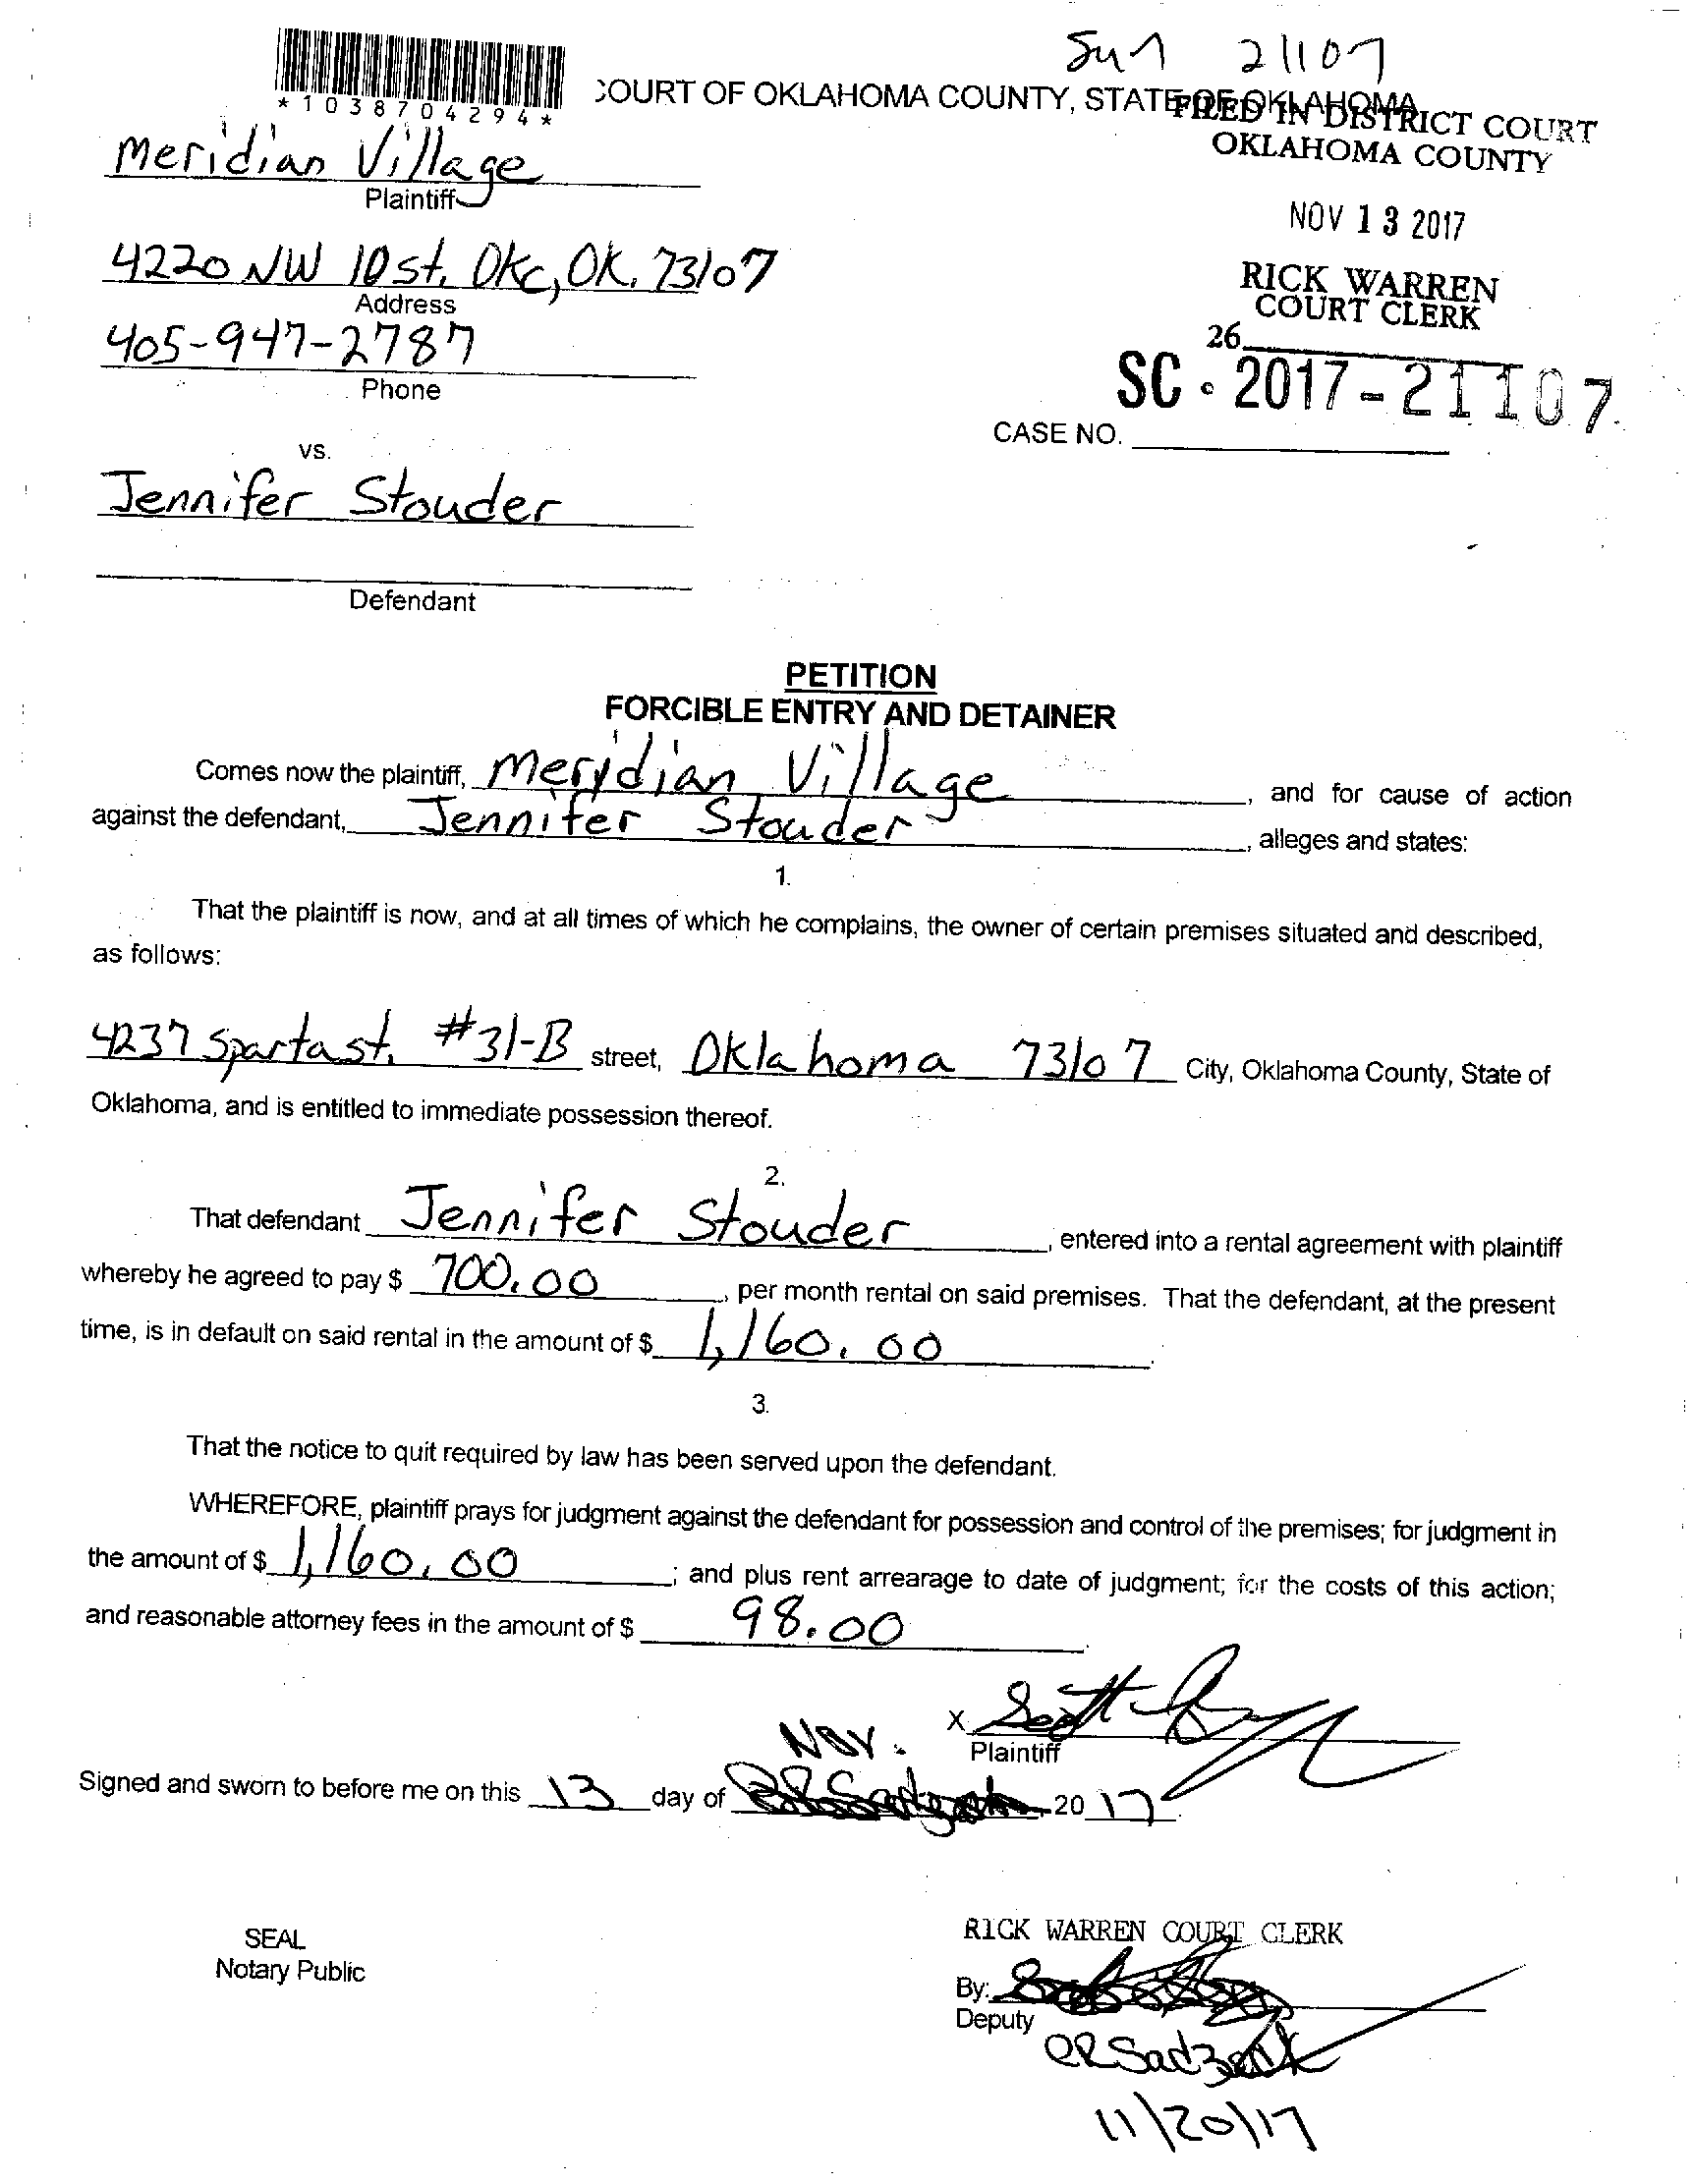 Jun 21107
*1038704294*
COURT OF OKLAHOMA COUNTY, STATE OF OKLAHOMA
FILED IN DISTRICT COURT
OKLAHOMA COUNTY
Meridian Village
Plaintiff
NOV 13 2017
4220 NW 10 st. Okc, OK. 73107
Address
RICK WARREN
COURT CLERK
405-947-2787
Phone
26
SC - 2017-21107
CASE NO.
vs.
Jennifer Stouder
Defendant
PETITION
FORCIBLE ENTRY AND DETAINER
Comes now the plaintiff, Meridian Village, and for cause of action
against the defendant, Jennifer Stouder, alleges and states:
1.
That the plaintiff is now, and at all times of which he complains, the owner of certain premises situated and described,
as follows:
4237 Sparta st. #31-B street, Oklahoma 73107 City, Oklahoma County, State of
Oklahoma, and is entitled to immediate possession thereof.
2.
That defendant Jennifer Stouder, entered into a rental agreement with plaintiff
whereby he agreed to pay $ 700.00, per month rental on said premises. That the defendant, at the present
time, is in default on said rental in the amount of $ 1,160.00.
3.
That the notice to quit required by law has been served upon the defendant.
WHEREFORE, plaintiff prays for judgment against the defendant for possession and control of the premises; for judgment in
the amount of $ 1,160.00; and plus rent arrearage to date of judgment; for the costs of this action;
and reasonable attorney fees in the amount of $ 98.00.
X Scott
Plaintiff
Nov.
Signed and sworn to before me on this 13 day of 20 17.
SEAL
Notary Public
RICK WARREN COURT CLERK
By:
Deputy
11/20/17